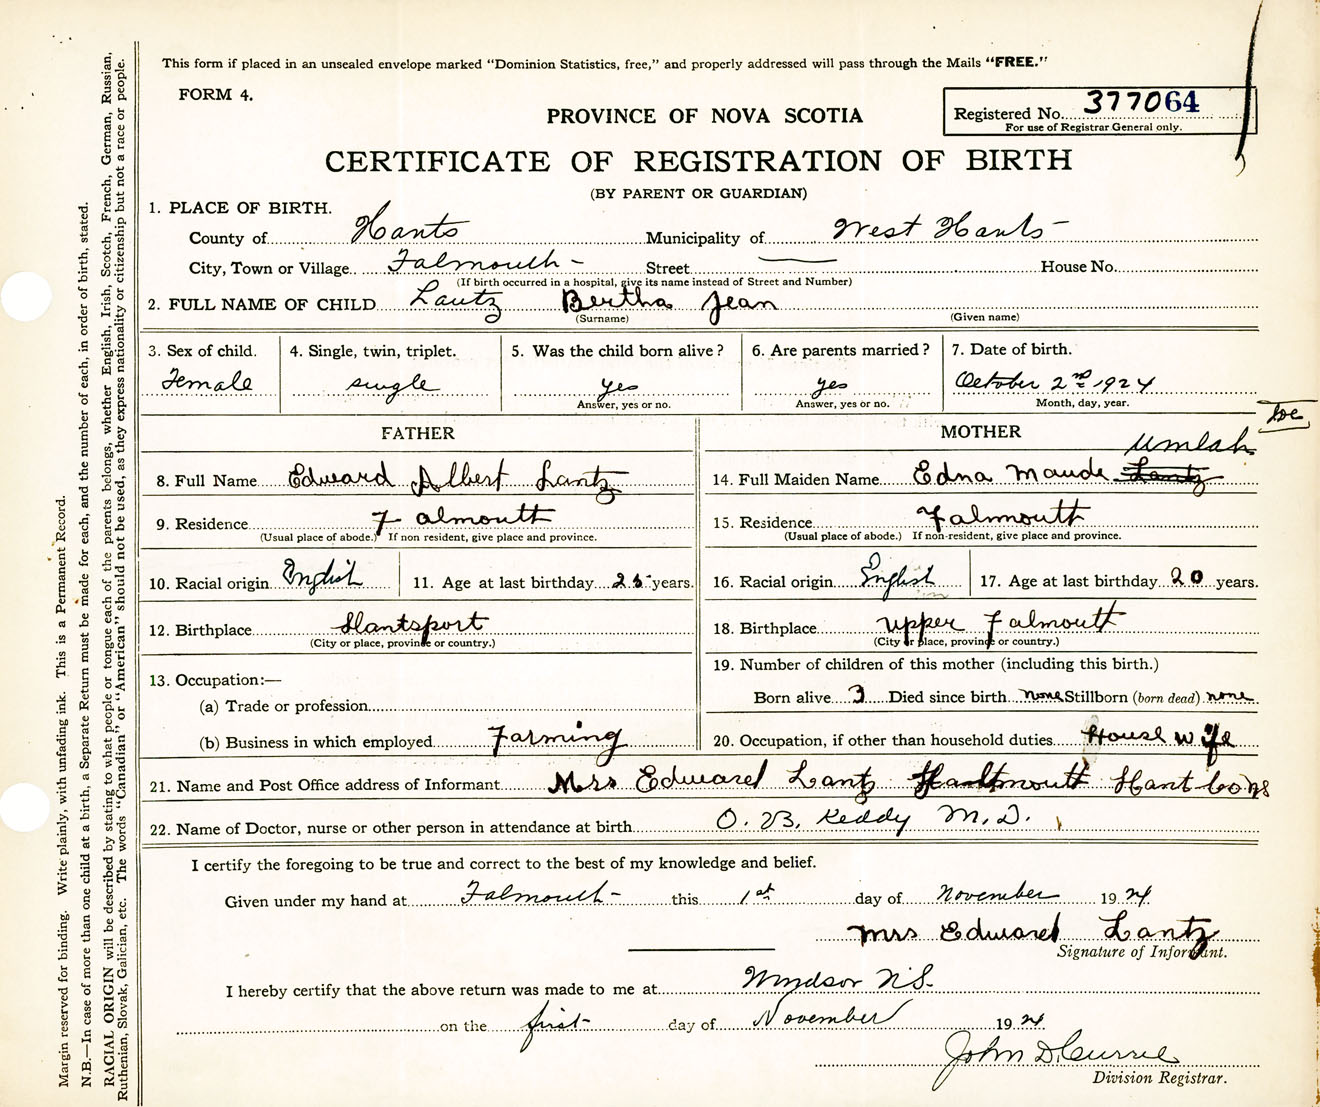 This form if placed in an unsealed envelope marked "Dominion Statistics, free," and properly addressed will pass through the Mails "FREE."
FORM 4.
Registered No. 377064
For use of Registrar General only.
PROVINCE OF NOVA SCOTIA
CERTIFICATE OF REGISTRATION OF BIRTH
(BY PARENT OR GUARDIAN)
1. PLACE OF BIRTH.
County of Hants Municipality of West Hants
City, Town or Village Falmouth Street — House No.
(If birth occurred in a hospital, give its name instead of Street and Number)
2. FULL NAME OF CHILD Lantz Bertha Jean
(Surname) (Given name)
3. Sex of child. 4. Single, twin, triplet. 5. Was the child born alive? 6. Are parents married? 7. Date of birth.
Female single yes yes October 2nd 1924
Answer, yes or no. Answer, yes or no. Month, day, year.
FATHER MOTHER
Umlah
8. Full Name Edward Albert Lantz 14. Full Maiden Name Edna Maude Lantz
9. Residence Falmouth 15. Residence Falmouth
(Usual place of abode.) If non resident, give place and province. (Usual place of abode.) If non-resident, give place and province.
10. Racial origin English 11. Age at last birthday years. 16. Racial origin English 17. Age at last birthday 20 years.
12. Birthplace Hantsport 18. Birthplace upper Falmouth
(City or place, province or country.) (City or place, province or country.)
13. Occupation:— 19. Number of children of this mother (including this birth.)
(a) Trade or profession Born alive 3 Died since birth none Stillborn (born dead) none
(b) Business in which employed Farming 20. Occupation, if other than household duties House wife
21. Name and Post Office address of Informant Mrs Edward Lantz Falmouth Hant Co NS
22. Name of Doctor, nurse or other person in attendance at birth O. B. Keddy M.D.
I certify the foregoing to be true and correct to the best of my knowledge and belief.
Given under my hand at Falmouth this 1st day of November 1924
Mrs Edward Lantz
Signature of Informant.
I hereby certify that the above return was made to me at Windsor N.S.
on the first day of November 1924
John D. Currie
Division Registrar.
Margin reserved for binding. Write plainly, with unfading ink. This is a Permanent Record.
N.B.—In case of more than one child at a birth, a Separate Return must be made for each, and the number of each, in order of birth, stated.
RACIAL ORIGIN will be described by stating to what people or tongue each of the parents belongs, whether English, Irish, Scotch, French, German, Russian,
Ruthenian, Slovak, Galician, etc. The words "Canadian" or "American" should not be used, as they express nationality or citizenship but not a race or people.